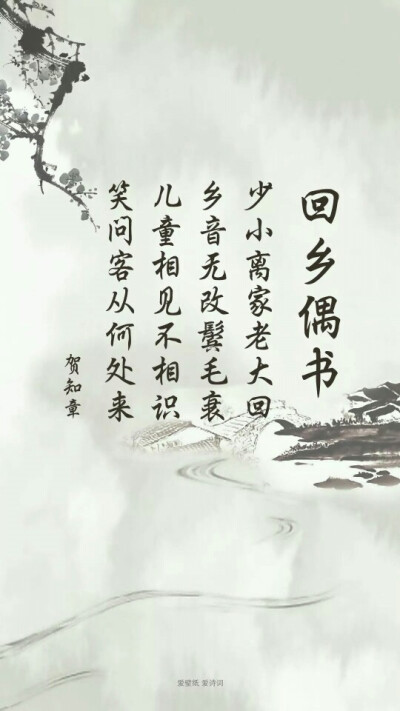 回乡偶书
少小离家老大回
乡音无改鬓毛衰
儿童相见不相识
笑问客从何处来
贺知章
爱壁纸 爱诗词